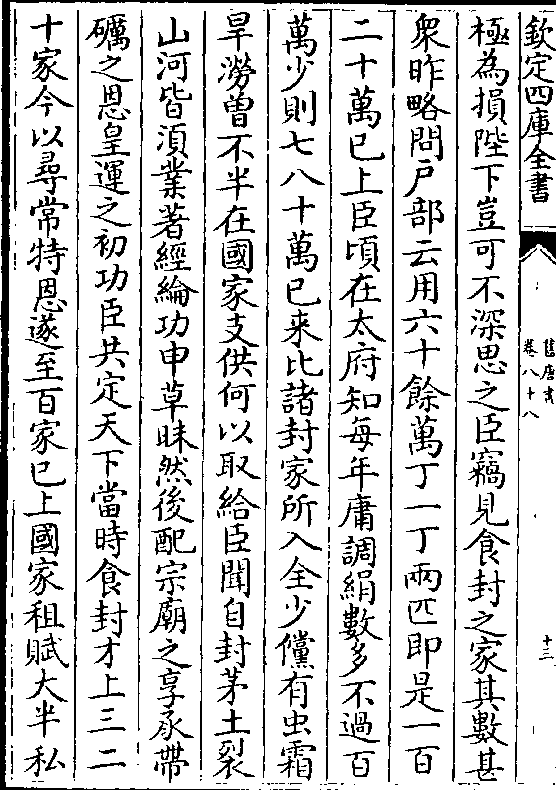 欽定四庫全書
舊唐書
卷八十八
十三
極為損陛下豈可不深思之臣竊見食封之家其數甚
衆昨略問戶部云用六十餘萬丁一丁兩匹即是一百
二十萬已上臣頃在太府知每年庸調絹數多不過百
萬少則七八十萬已来比諸封家所入全少儻有虫霜
旱澇曽不半在國家支供何以取給臣聞自封茅土裂
山河皆湏業著經綸功申草昧然後配宗廟之享承帶
礪之恩皇運之初功臣共定天下當時食封才上三二
十家今以尋常特恩遂至百家已上國家租賦大半私